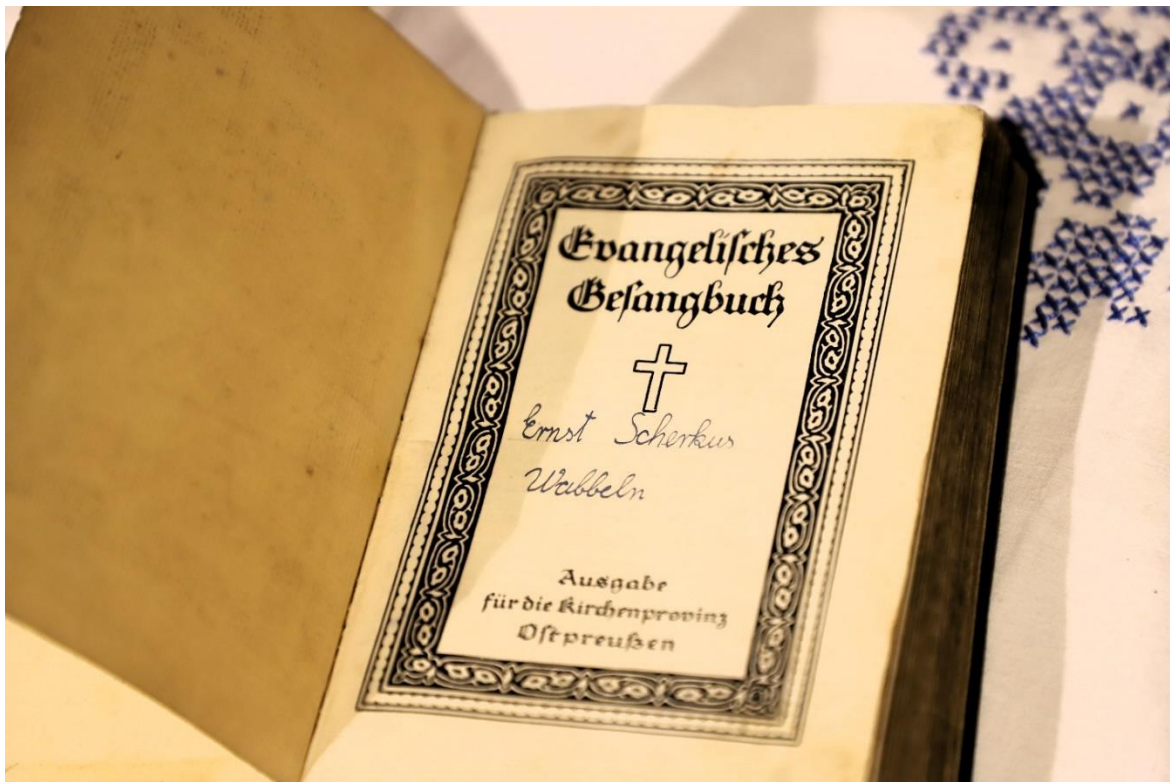 Evangelisches
Gesangbuch
Ernst Scherkus
Wabbeln
Ausgabe
für die Kirchenprovinz
Ostpreußen